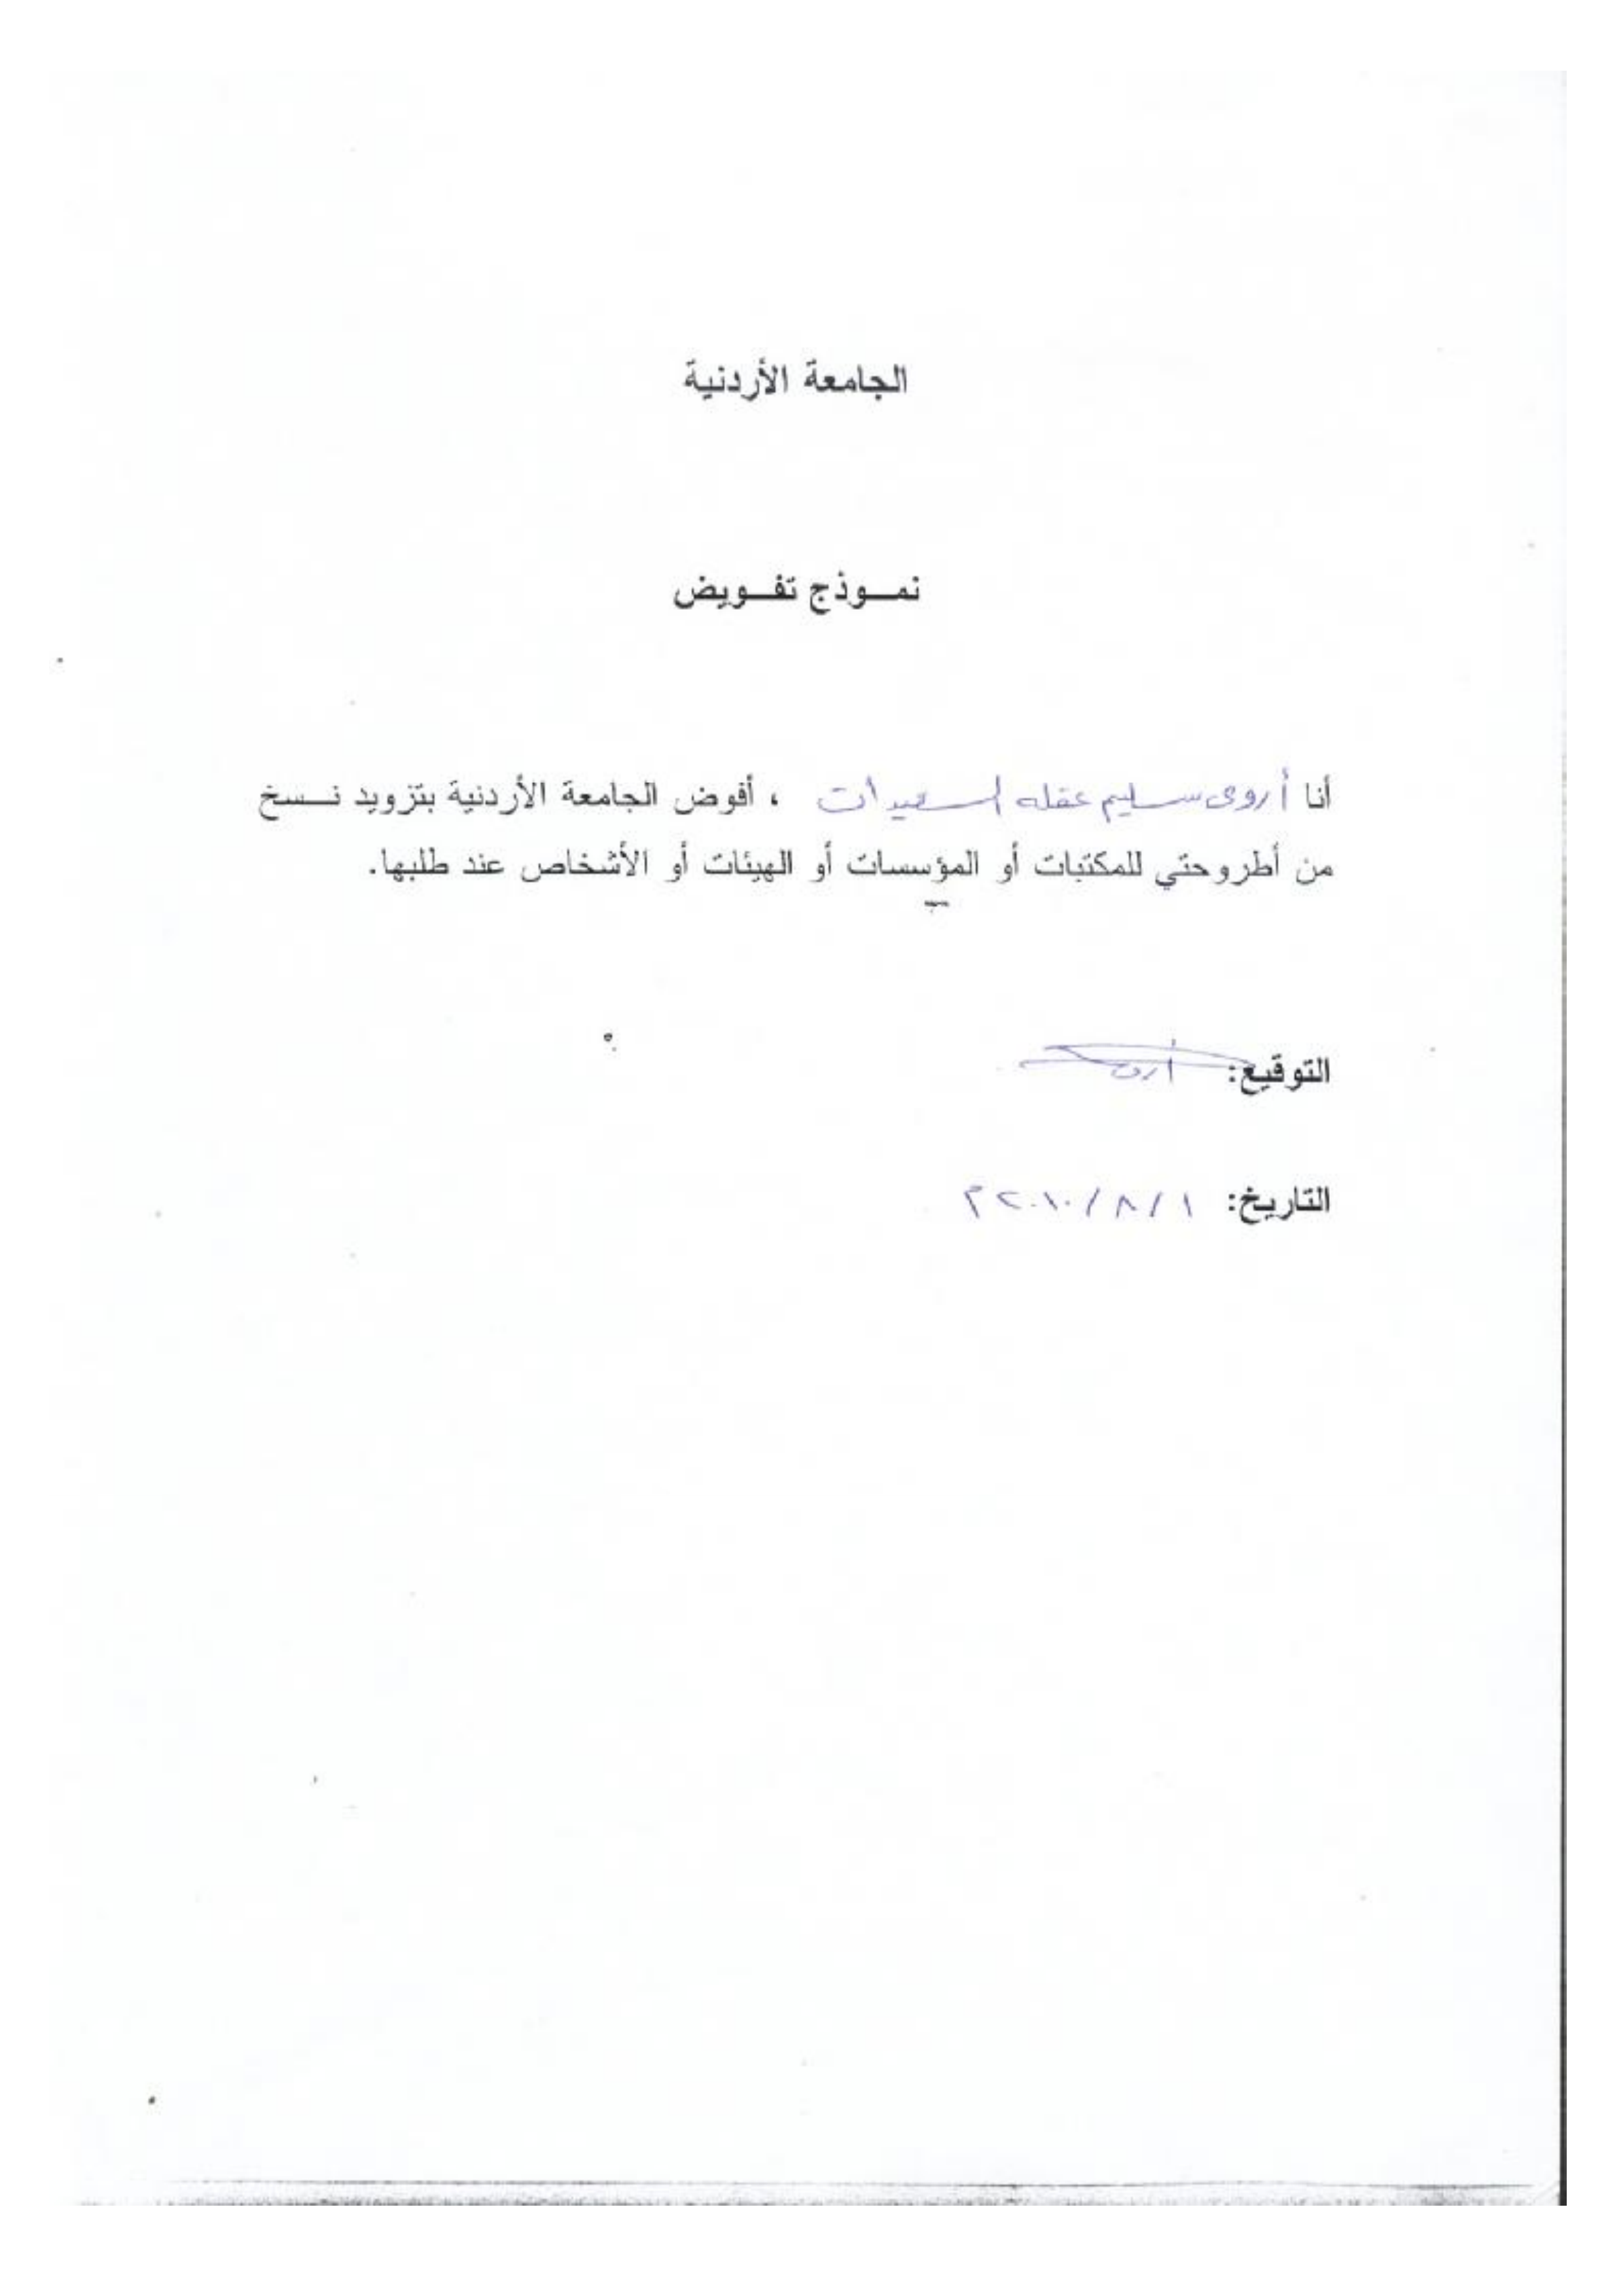 الجامعة الأردنية
نمــوذج تفــويض
أنا أروى سليم عقله السعيدات ، أفوض الجامعة الأردنية بتزويد نــسخ
من أطروحتي للمكتبات أو المؤسسات أو الهيئات أو الأشخاص عند طلبها.
التوقيع: أروى
التاريخ: ١ / ٨ / ٢٠١٠م